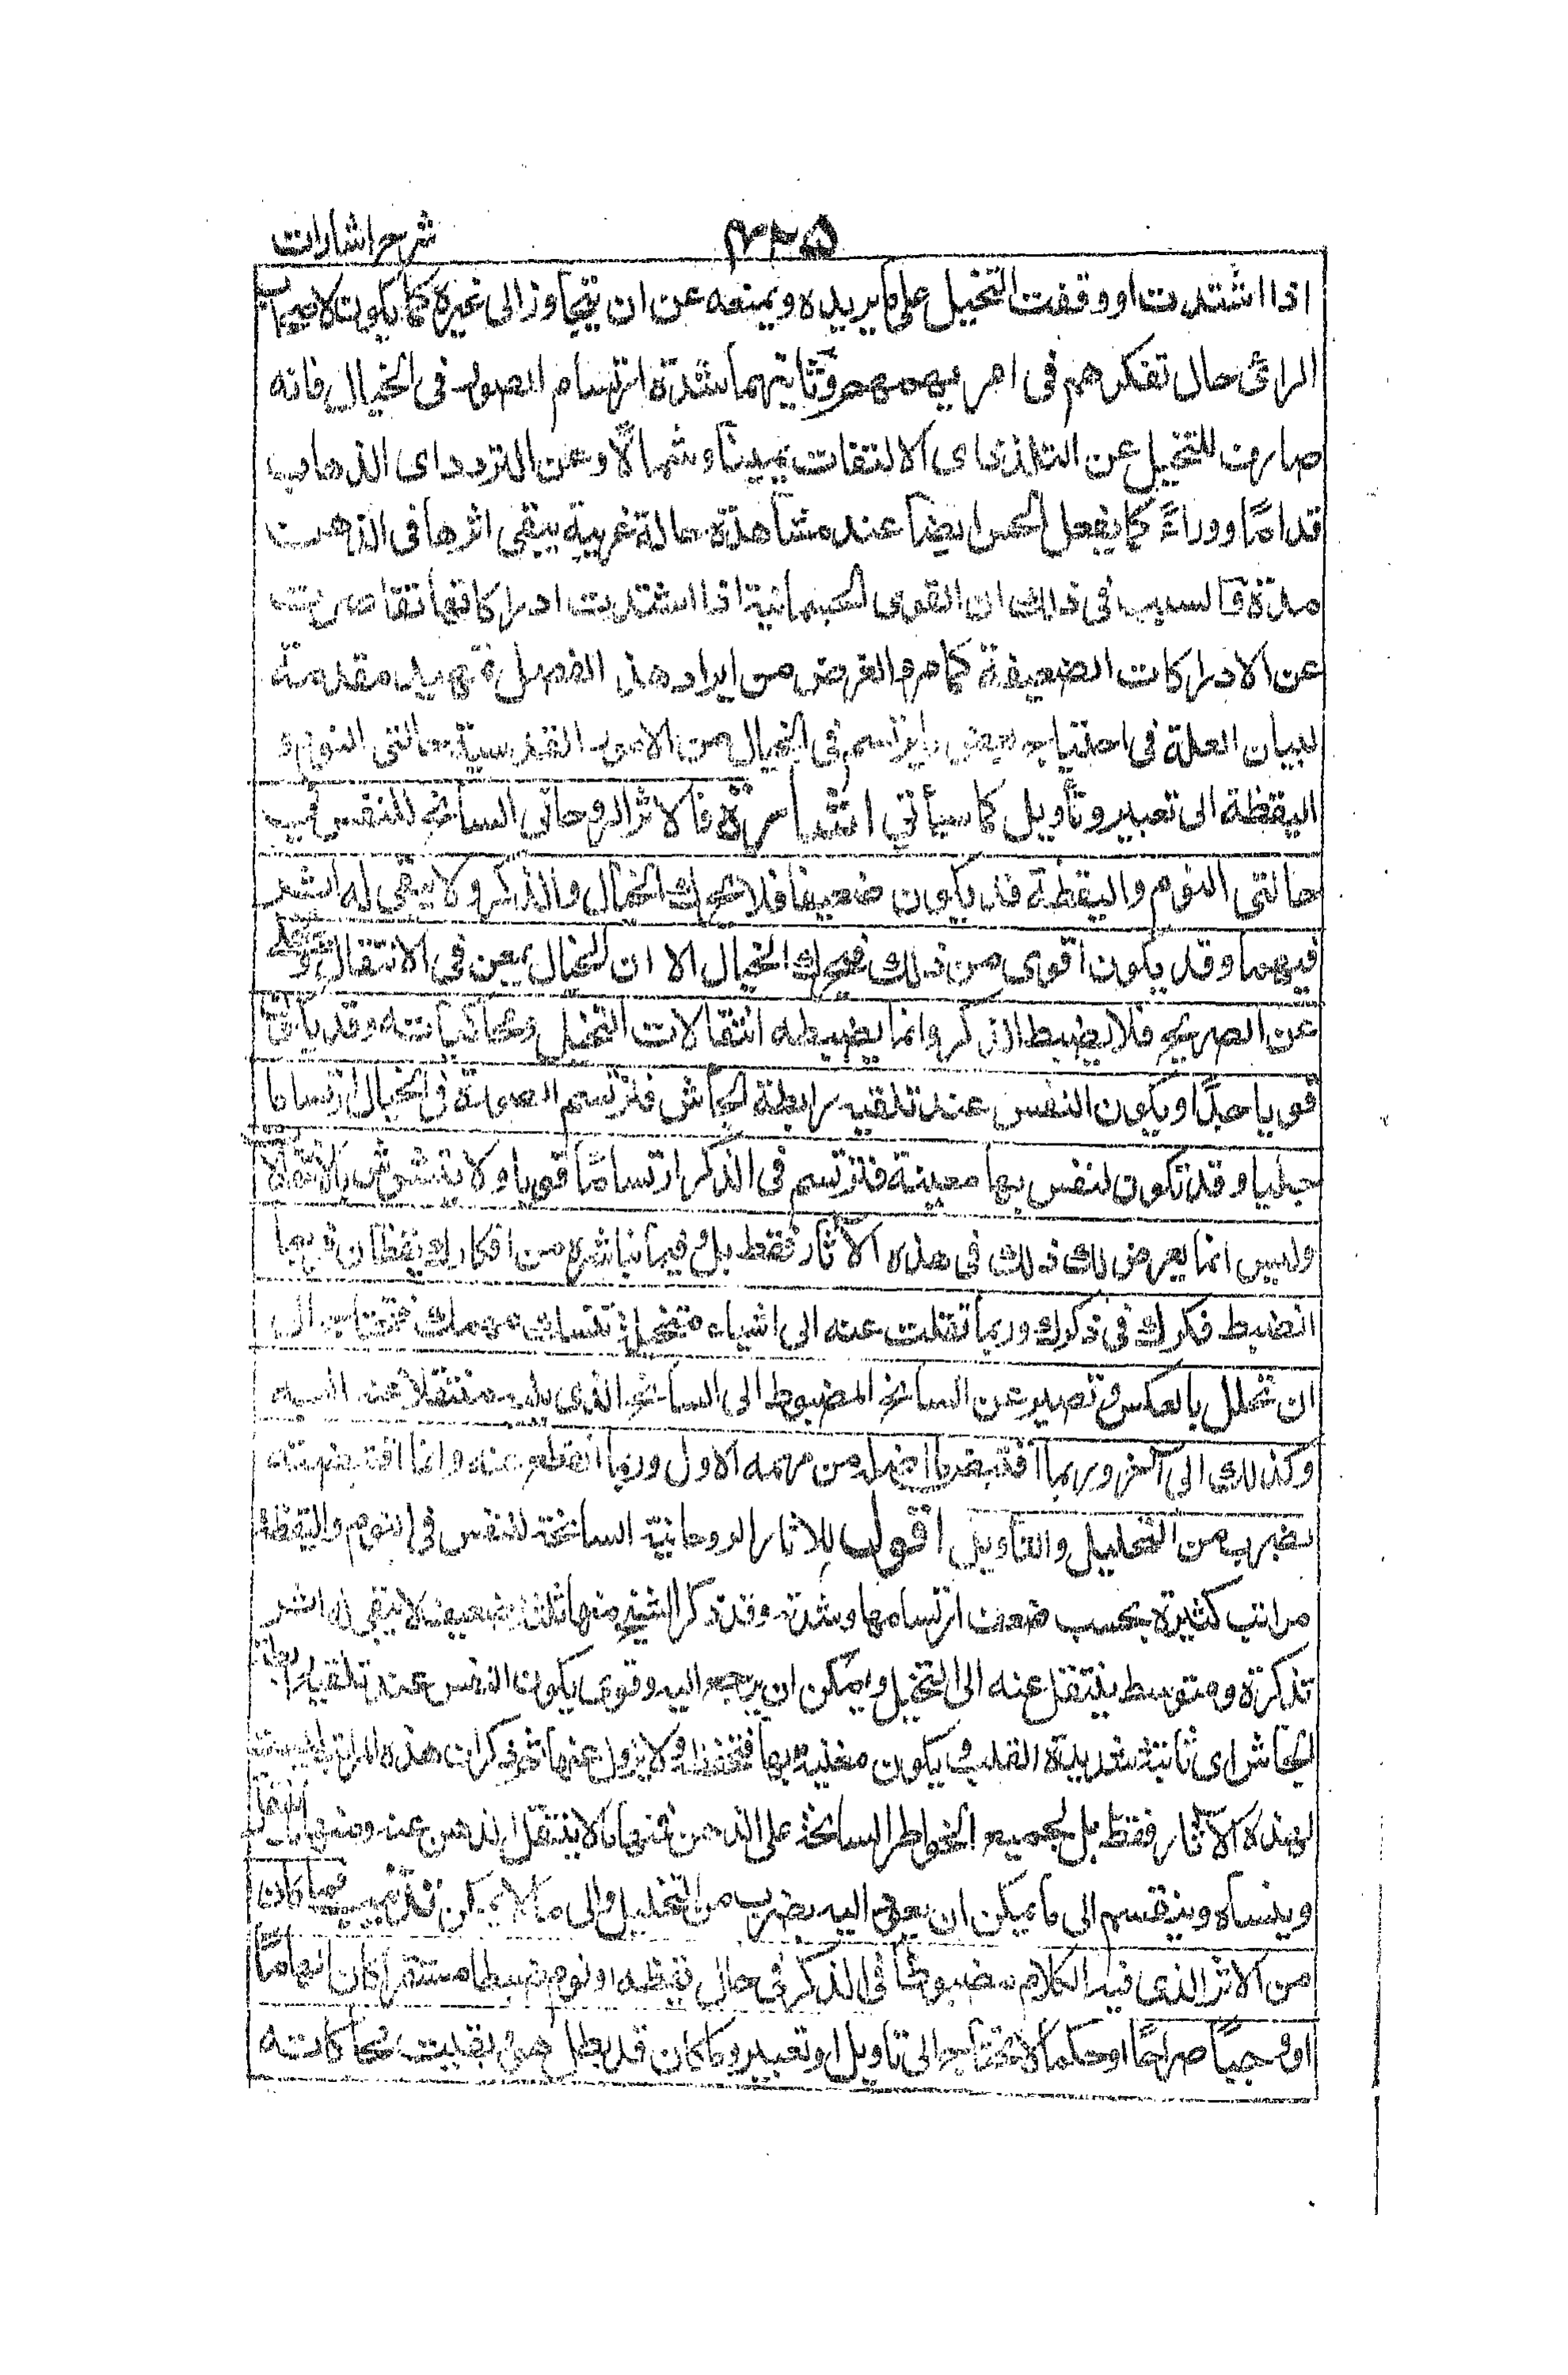 شرح اشارات
۴۳۵
اذا اشتدت او وقفت التخيل على ما يريده ويمنعه عن ان يتجاوز الى غيره كما يكون لاصحاب
الرائى حال تفكرهم فى امر يهمهم وثانيهما شدة ارتسام الصور فى الخيال فانه
صارف للتخيل عن التلذذ اى الالتفات يمينا وشمالا وعن التردد اى الذهاب
قداما ووراء كما يفعل الحس ايضا عند مشاهدة حالة غريبة يبقى اثرها فى الذهن
مدة والسبب فى ذلك ان القوى الجسمانية اذا اشتدت ادراكاتها تقاصرت
عن الادراكات الضعيفة كما مر والغرض من ايراد هذا الفصل تمهيد مقدمة
لبيان العلة فى احتياج بعض ما يرتسم فى الخيال من الامور القدسية حالتى النوم و
اليقظة الى تعبير وتأويل كما سيأتي اشارة فالاثر الروحانى السانح للنفس فى
حالتى النوم واليقظة قد يكون ضعيفا فلا يحرك الخيال والذكر ولا يبقى له اثر
فيهما وقد يكون اقوى من ذلك فيحرك الخيال الا ان الخيال يمعن فى الانتقال ويخلى
عن الصريح فلا يضبط الذكر وانما يضبطه انتقالات التخيل ومحاكياته وقد يكون
قويا جدا ويكون النفس عند تلقيه رابطة الجأش فترتسم الصورة فى الخيال ارتساما
جليا وقد تكون لنفس بها معينة فترتسم فى الذكر ارتساما قويا ولا يتشوش بالانتقالات
وليس انما يعرض لك ذلك فى هذه الآثار فقط بل وفيما تباشره من افكارك يقظان فربما
انضبط فكرك فى ذكرك وربما تقلت عنه الى اشياء متخيلة تنسيك مهمك فتحتاج الى
ان تحلل بالعكس وتصير عن السانح المضبوط الى السانح الذى يليه منتقلا عنه اليه
وكذلك الى آخر وربما اقتبض ما اضله من مهمه الاول وربما انقطع عنه وانما اقتبضته
بضرب من التحليل والتأويل اقول للاثار الروحانية السانحة للنفس فى النوم واليقظة
مراتب كثيرة بحسب ضعف ارتسامها وشدته وقد ذكر الشيخ منها ثلاثا ضعيف لا يبقى له اثر
تذكرة ومتوسط ينتقل عنه الى التخيل ويمكن ان يرجع اليه وقوى يكون النفس عند تلقيه رابطة
الجأش اى ثابتة شديدة القلب ويكون معنية بها فتحفظه ولا يزول عنها ثم ذكر ان هذه المراتب ليست
لهذه الآثار فقط بل لجميع الخواطر السانحة على الذهن فمنها ما لا ينتقل الذهن عنه ومنها ما ينتقل
وينساه وينقسم الى ما يمكن ان يعود اليه بضرب من التحليل والى ما لا يمكن تذنيب فما كان
من الاثر الذى فيه الكلام مضبوطا فى الذكر فى حال يقظة او نوم ضبطا مستقرا كان الهاما
او وحيا صراحا او حكما لا تحتاج الى تاويل او تعبير وما كان قد بطل هو وبقيت محاكاته